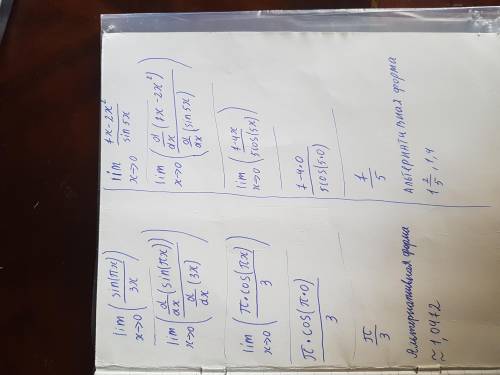 lim x→0 (sin(πx)/3x)
lim x→0 (d/dx (sin(πx)) / d/dx (3x))
lim x→0 (π·cos(πx)/3)
π·cos(π·0)/3
π/3
Альтернативная форма
≈ 1,0472
lim x→0 7x-2x²/sin5x
lim x→0 (d/dx (7x-2x²) / d/dx (sin5x))
lim x→0 (7-4x/5cos(5x))
7-4·0/5cos(5·0)
7/5
Альтернативная форма
1 2/5, 1,4